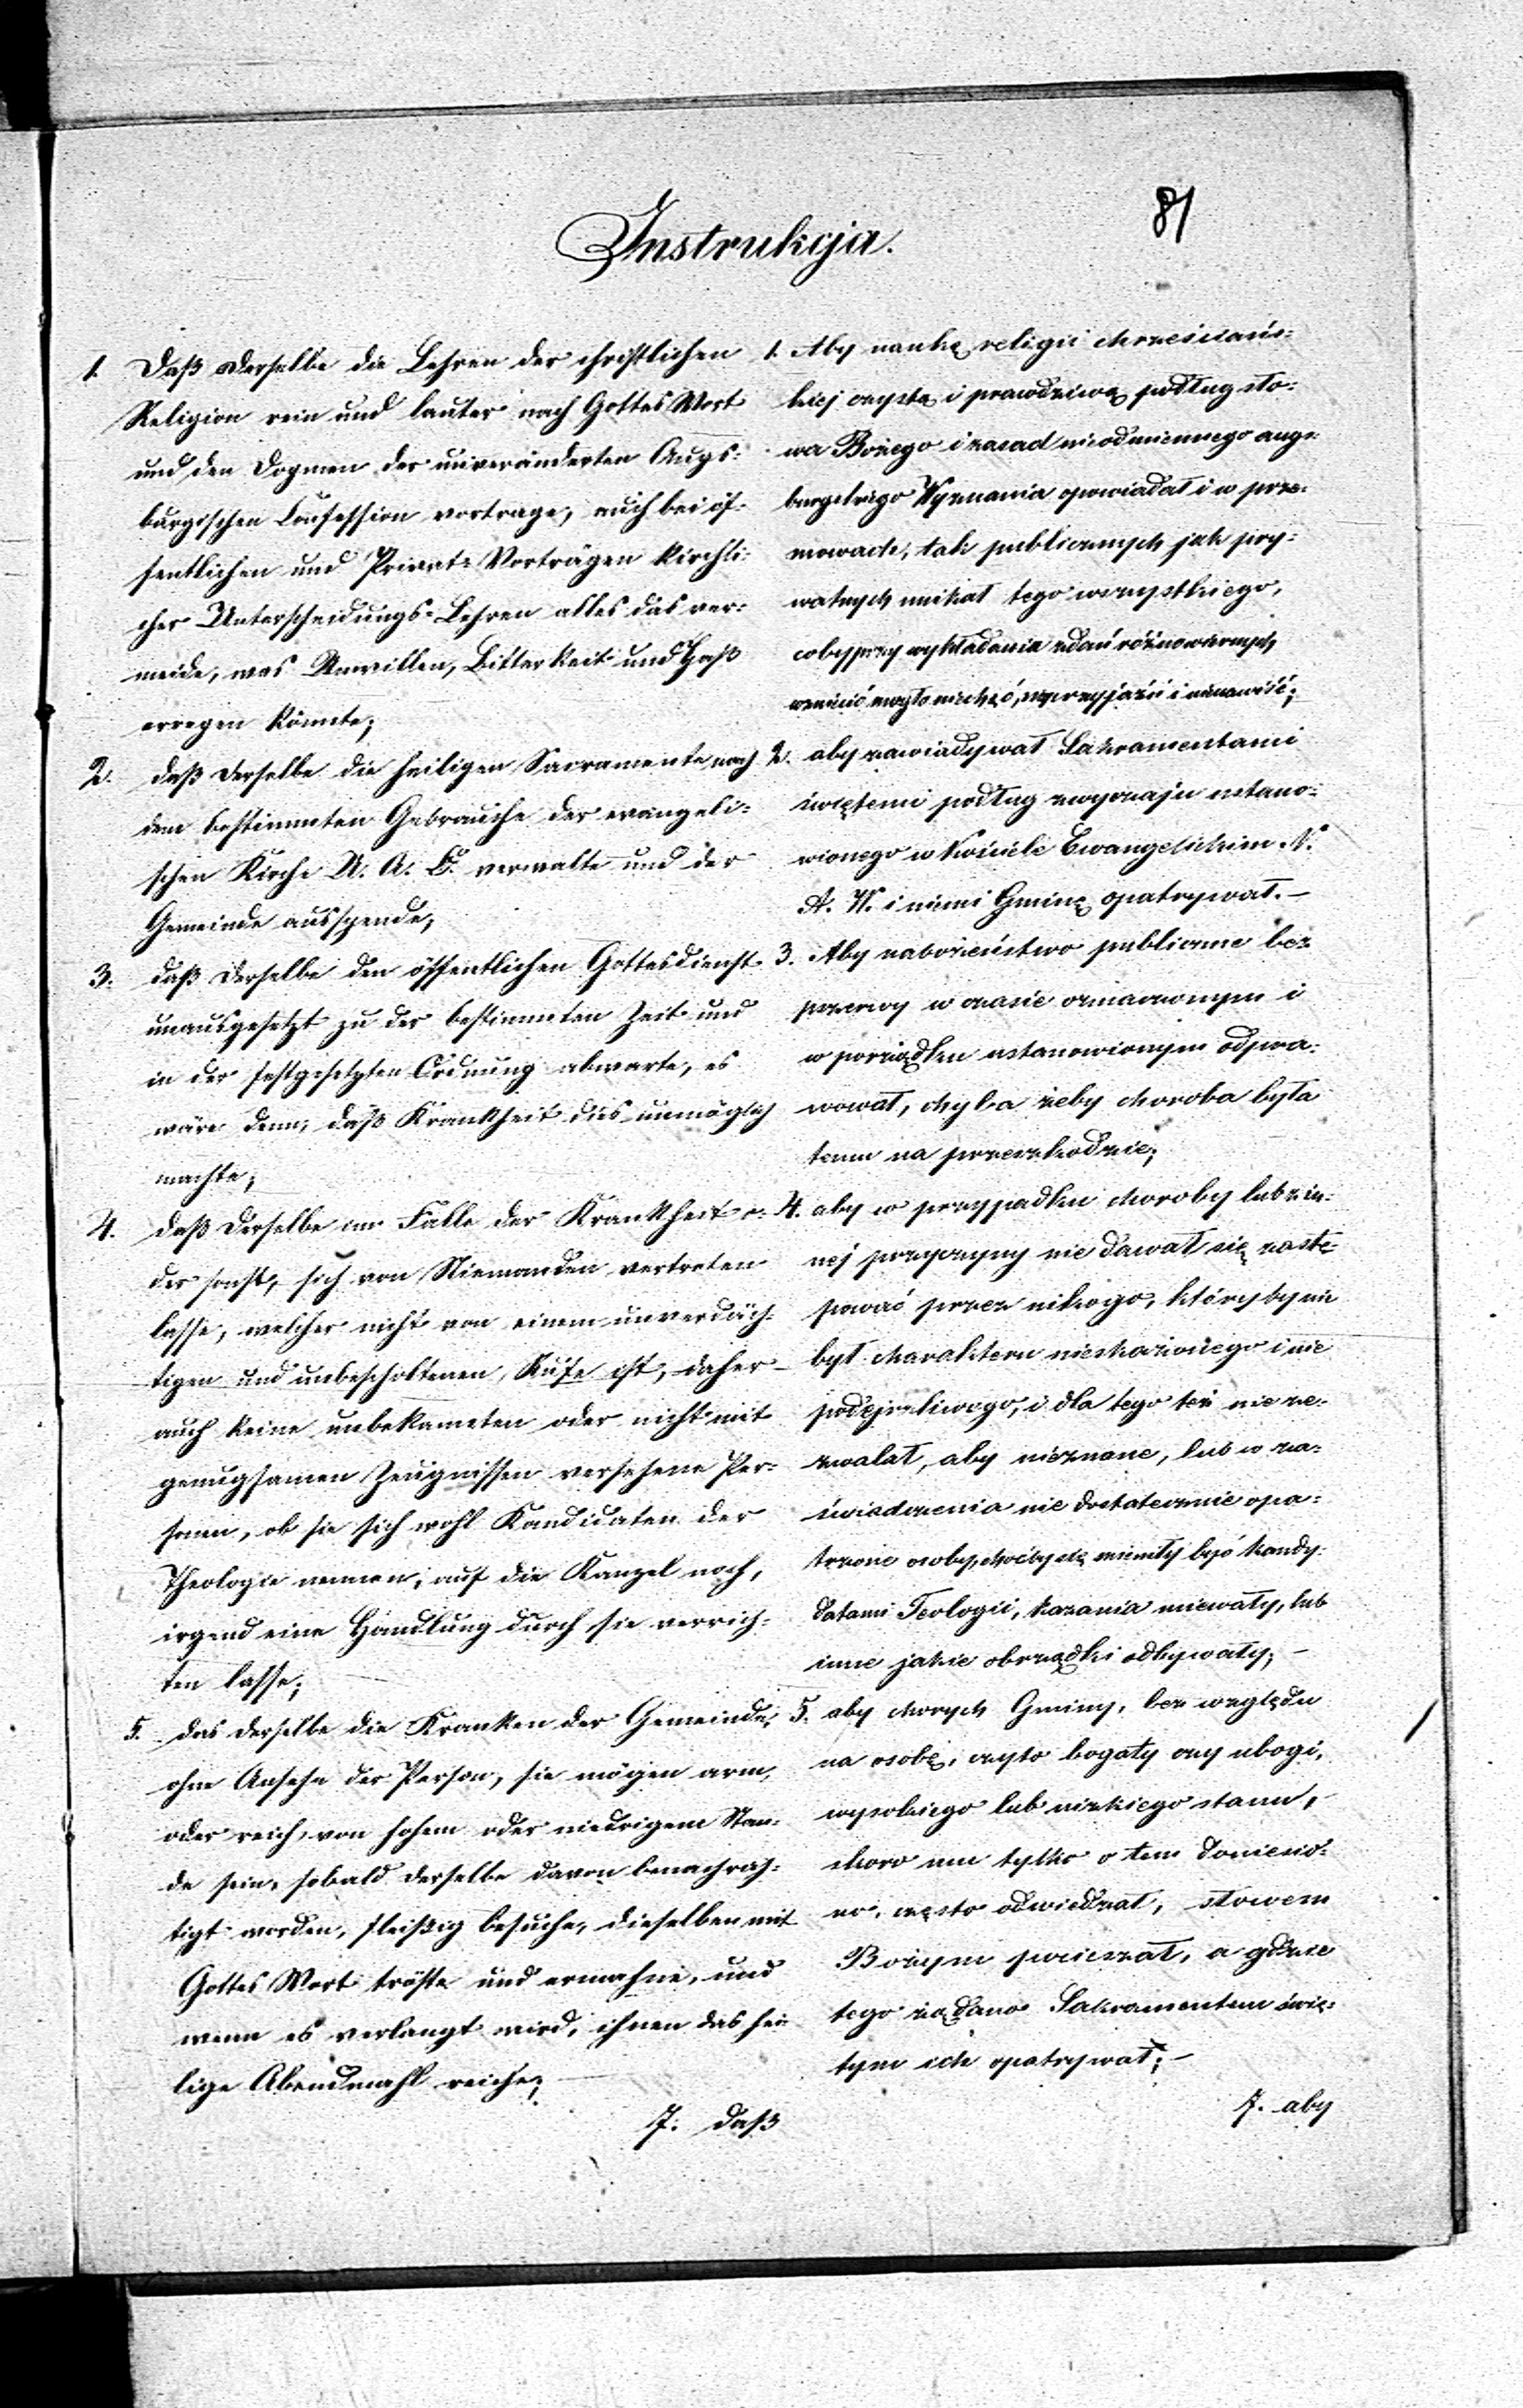 81
Instrukcja.
1. Daß derselbe die Lehren der christlichen
Religion rein und lauter nach Gottes Wort
und den Dogmen der unveränderten Augs-
burgischen Confession vortrage, auch bei öf-
fentlichen und Privat-Vorträgen kirchli-
cher Unterscheidungs-Lehren alles das ver-
meide, was Unwillen, Bitterkeit und Haß
erregen könnte;
2. daß derselbe die heiligen Sacramente nach
dem bestimmten Gebrauche der evangeli-
schen Kirche U. A. C. verwalte und der
Gemeinde ausspende;
3. daß derselbe den öffentlichen Gottesdienst
unausgesetzt zu der bestimmten Zeit und
in der festgesetzten Ordnung abwarte, es
wäre denn, daß Krankheit dies unmöglich
machte;
4. daß derselbe im Falle der Krankheit o-
der sonst, sich von Niemanden vertreten
lasse, welcher nicht von einem unverdäch-
tigen und unbescholtenen Rufe ist, daher
auch keine unbekannten oder nicht mit
genugsamen Zeugnissen versehene Per-
sonen, ob sie sich wohl Kandidaten der
Theologie nennen, auf die Kanzel noch,
irgend eine Handlung durch sie verrich-
ten lasse;
5. das derselbe die Kranken der Gemeinde,
ohne Ansehn der Person, sie mögen arm,
oder reich, von hohem oder niedrigem Stan-
de sein, sobald derselbe davon benachrich-
tigt worden, fleißig besuche, dieselben mit
Gottes Wort tröste und ermahne, und
wenn es verlangt wird, ihnen das hei-
lige Abendmahl reiche;
7. daß
1. Aby naukę religii chrześciańs-
kiej czystą i prawdziwą podług sło-
wa Bożego i zasad nieodmiennego augs-
burgskiego Wyznania opowiadał i w prze-
mowach, tak publicznych jak pry-
watnych unikał tego wszystkiego,
coby przy wykładania zdań różnowiernych,
wzniecić mogło niechęć, nieprzyjaźń i nienawiść;
2. aby zawiadywał Sakramentami
świętemi podług zwyczaju ustano-
wionego w Kościele Ewangelickim N.
A. W. i niemi Gminę opatrywał. —
3. Aby nabożeństwo publiczne bez
przerwy w czasie oznaczonym i
w porządku ustanowionym odpra-
wował, chyba żeby choroba była
temu na przeszkodzie;
4. aby w przypadku choroby lub z in-
nej przyczyny nie dawał się zastę-
pować przez nikogo, któryby nie
był charakteru nieskaźonego i nie
podejrzliwego, i dla tego też nie ze-
zwalał, aby nieznane, lub w za-
świadczenia nie dostatecznie opa-
trzone osoby, choćby się mieniły być kandy-
datami Teologii, kazania miewały, lub
inne jakie obrządki odbywały; —
5. aby chorych Gminy, bez względu
na osobę, czyto bogaty czy ubogi,
wysokiego lub nizkiego stanu, —
skoro mu tylko o tem doniesio-
no, często odwiedzał, słowem
Bożym pocieszał, a gdzie
tego żądano Sakramentem świę-
tym ich opatrywał; —
7. aby